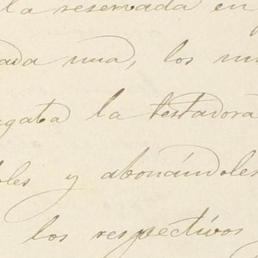 la reservada en
cada una, los
la testadora
y abonándoles
los respectivos